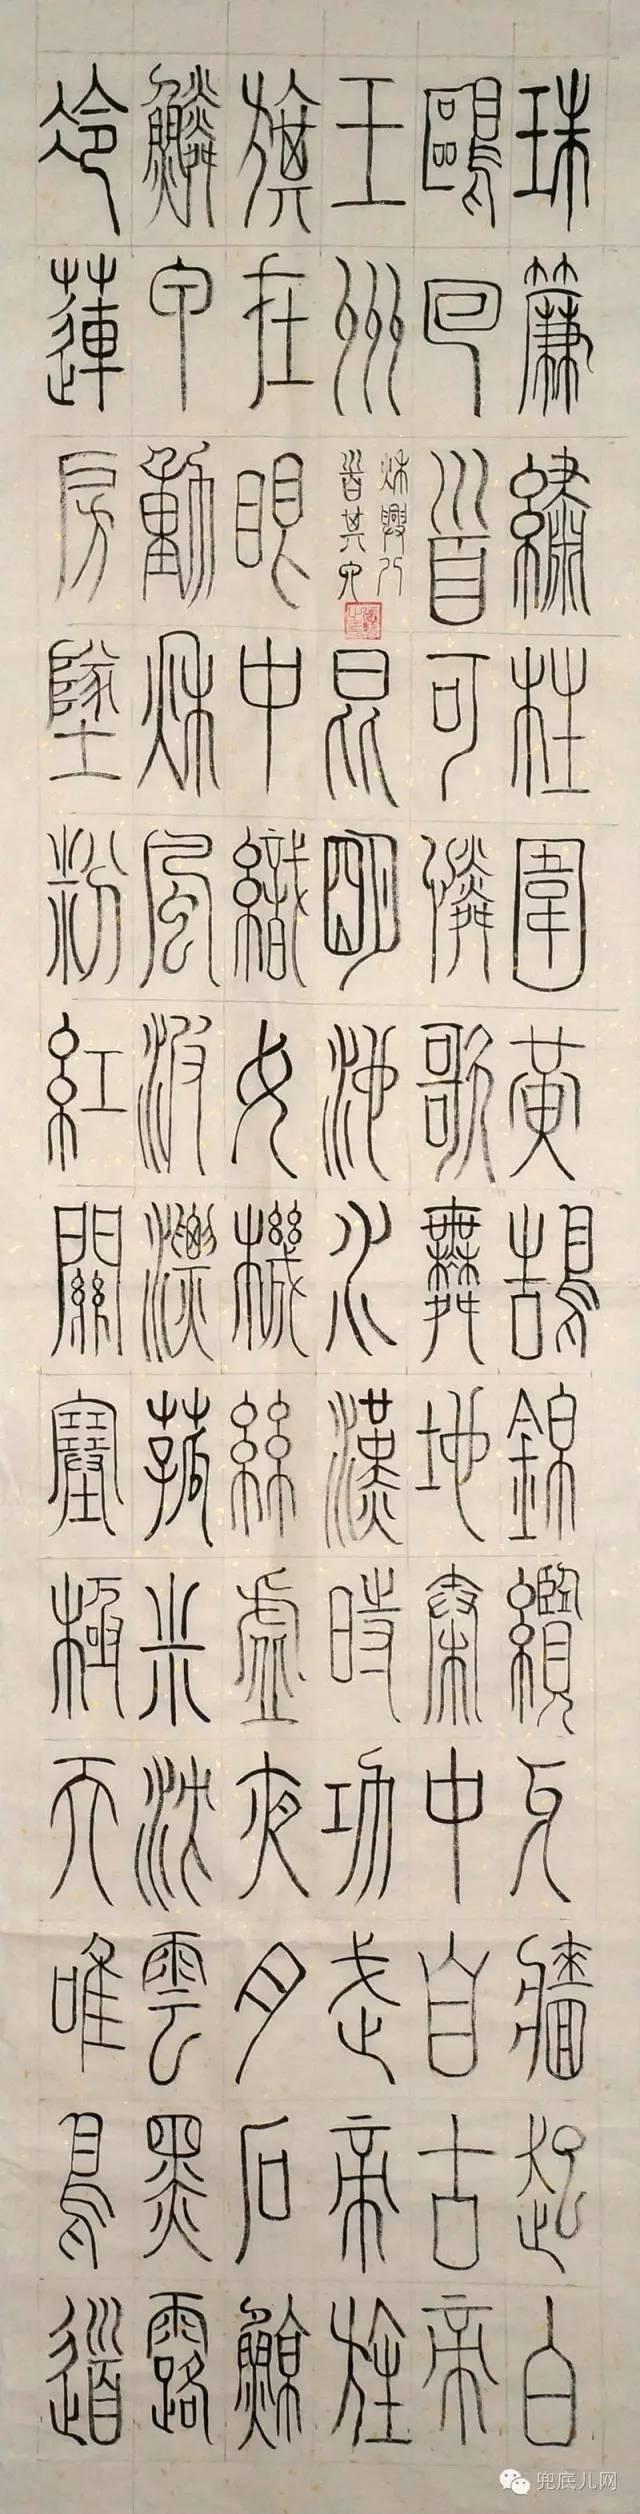 珠簾繡柱圍黃鵠錦纜牙牆起白
鷗回首可憐歌舞地秦中自古帝
王州
秋興八
首其六
昆明池水漢時功武帝旌
旗在眼中織女機絲虛夜月石鯨
鱗甲動秋風波漂菰米沈雲黑露
冷蓮房墜粉紅關塞極天唯鳥道
兜底儿网